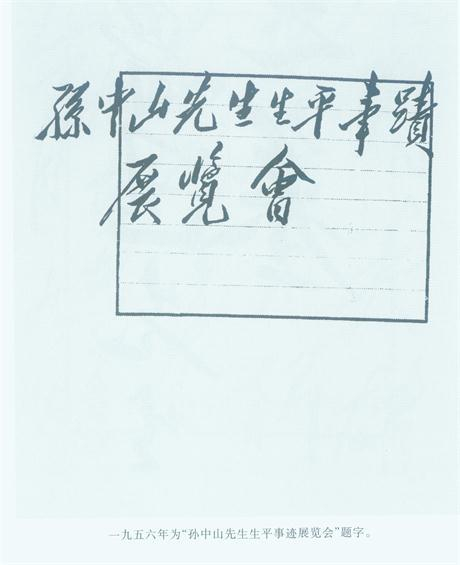 孫中山先生生平事蹟
展覽會
一九五六年为“孙中山先生生平事迹展览会”题字。